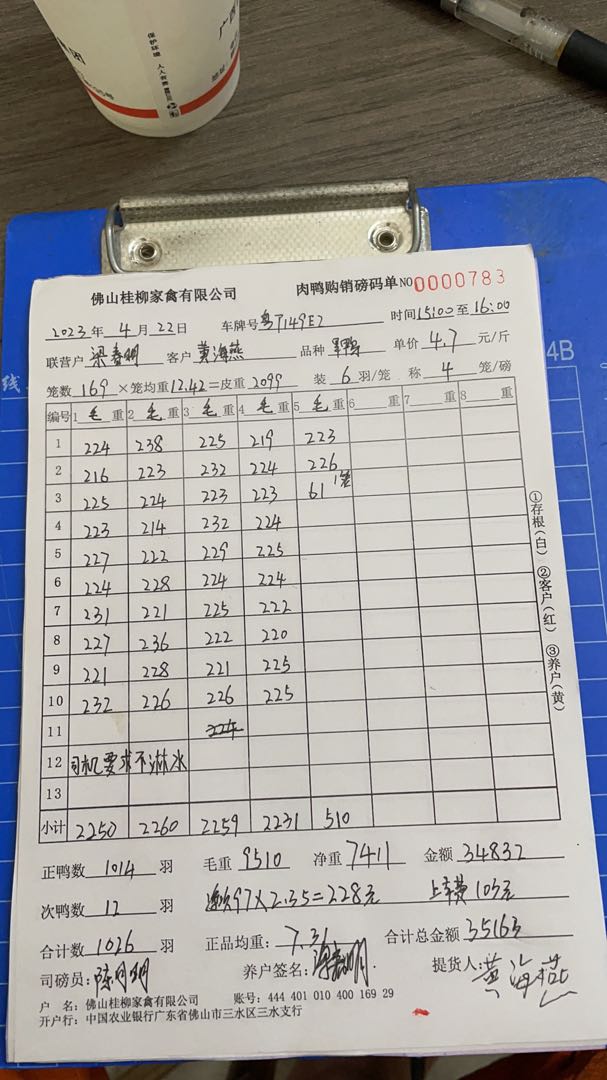 保护环境 人人有责
佛山桂柳家禽有限公司 肉鸭购销磅码单 NO 0000783
2023年 4月 22日 车牌号 粤T149E2 时间 15:00 至 16:00
联营户 梁春明 客户 黄海燕 品种 单价 4.7 元/斤
笼数 169 ×笼均重 12.42 =皮重 2099 装 6 羽/笼 称 4 笼/磅
编号 1 毛 重 2 毛 重 3 毛 重 4 毛 重 5 毛 重 6 重 7 重 8 重
1 224 238 225 219 223
2 216 223 232 224 226
3 225 224 223 223 61 1笼
4 223 214 232 224
5 227 222 229 225
6 224 228 224 224
7 231 221 225 222
8 227 236 222 220
9 221 228 221 225
10 232 226 226 225
11 224
12 司机要求不淋水
13
小计 2250 2260 2259 2231 510
正鸭数 1014 羽 毛重 9510 净重 7411 金额 34832
次鸭数 12 羽 97×2.35=228元 上车费 103元
合计数 1026 羽 正品均重: 7.31 合计总金额 35163
司磅员: 养户签名: 梁春明 提货人: 黄海燕
户 名: 佛山桂柳家禽有限公司 账号: 444 401 010 400 169 29
开户行: 中国农业银行广东省佛山市三水区三水支行
①存根(白) ②客户(红) ③养户(黄)
4B
线